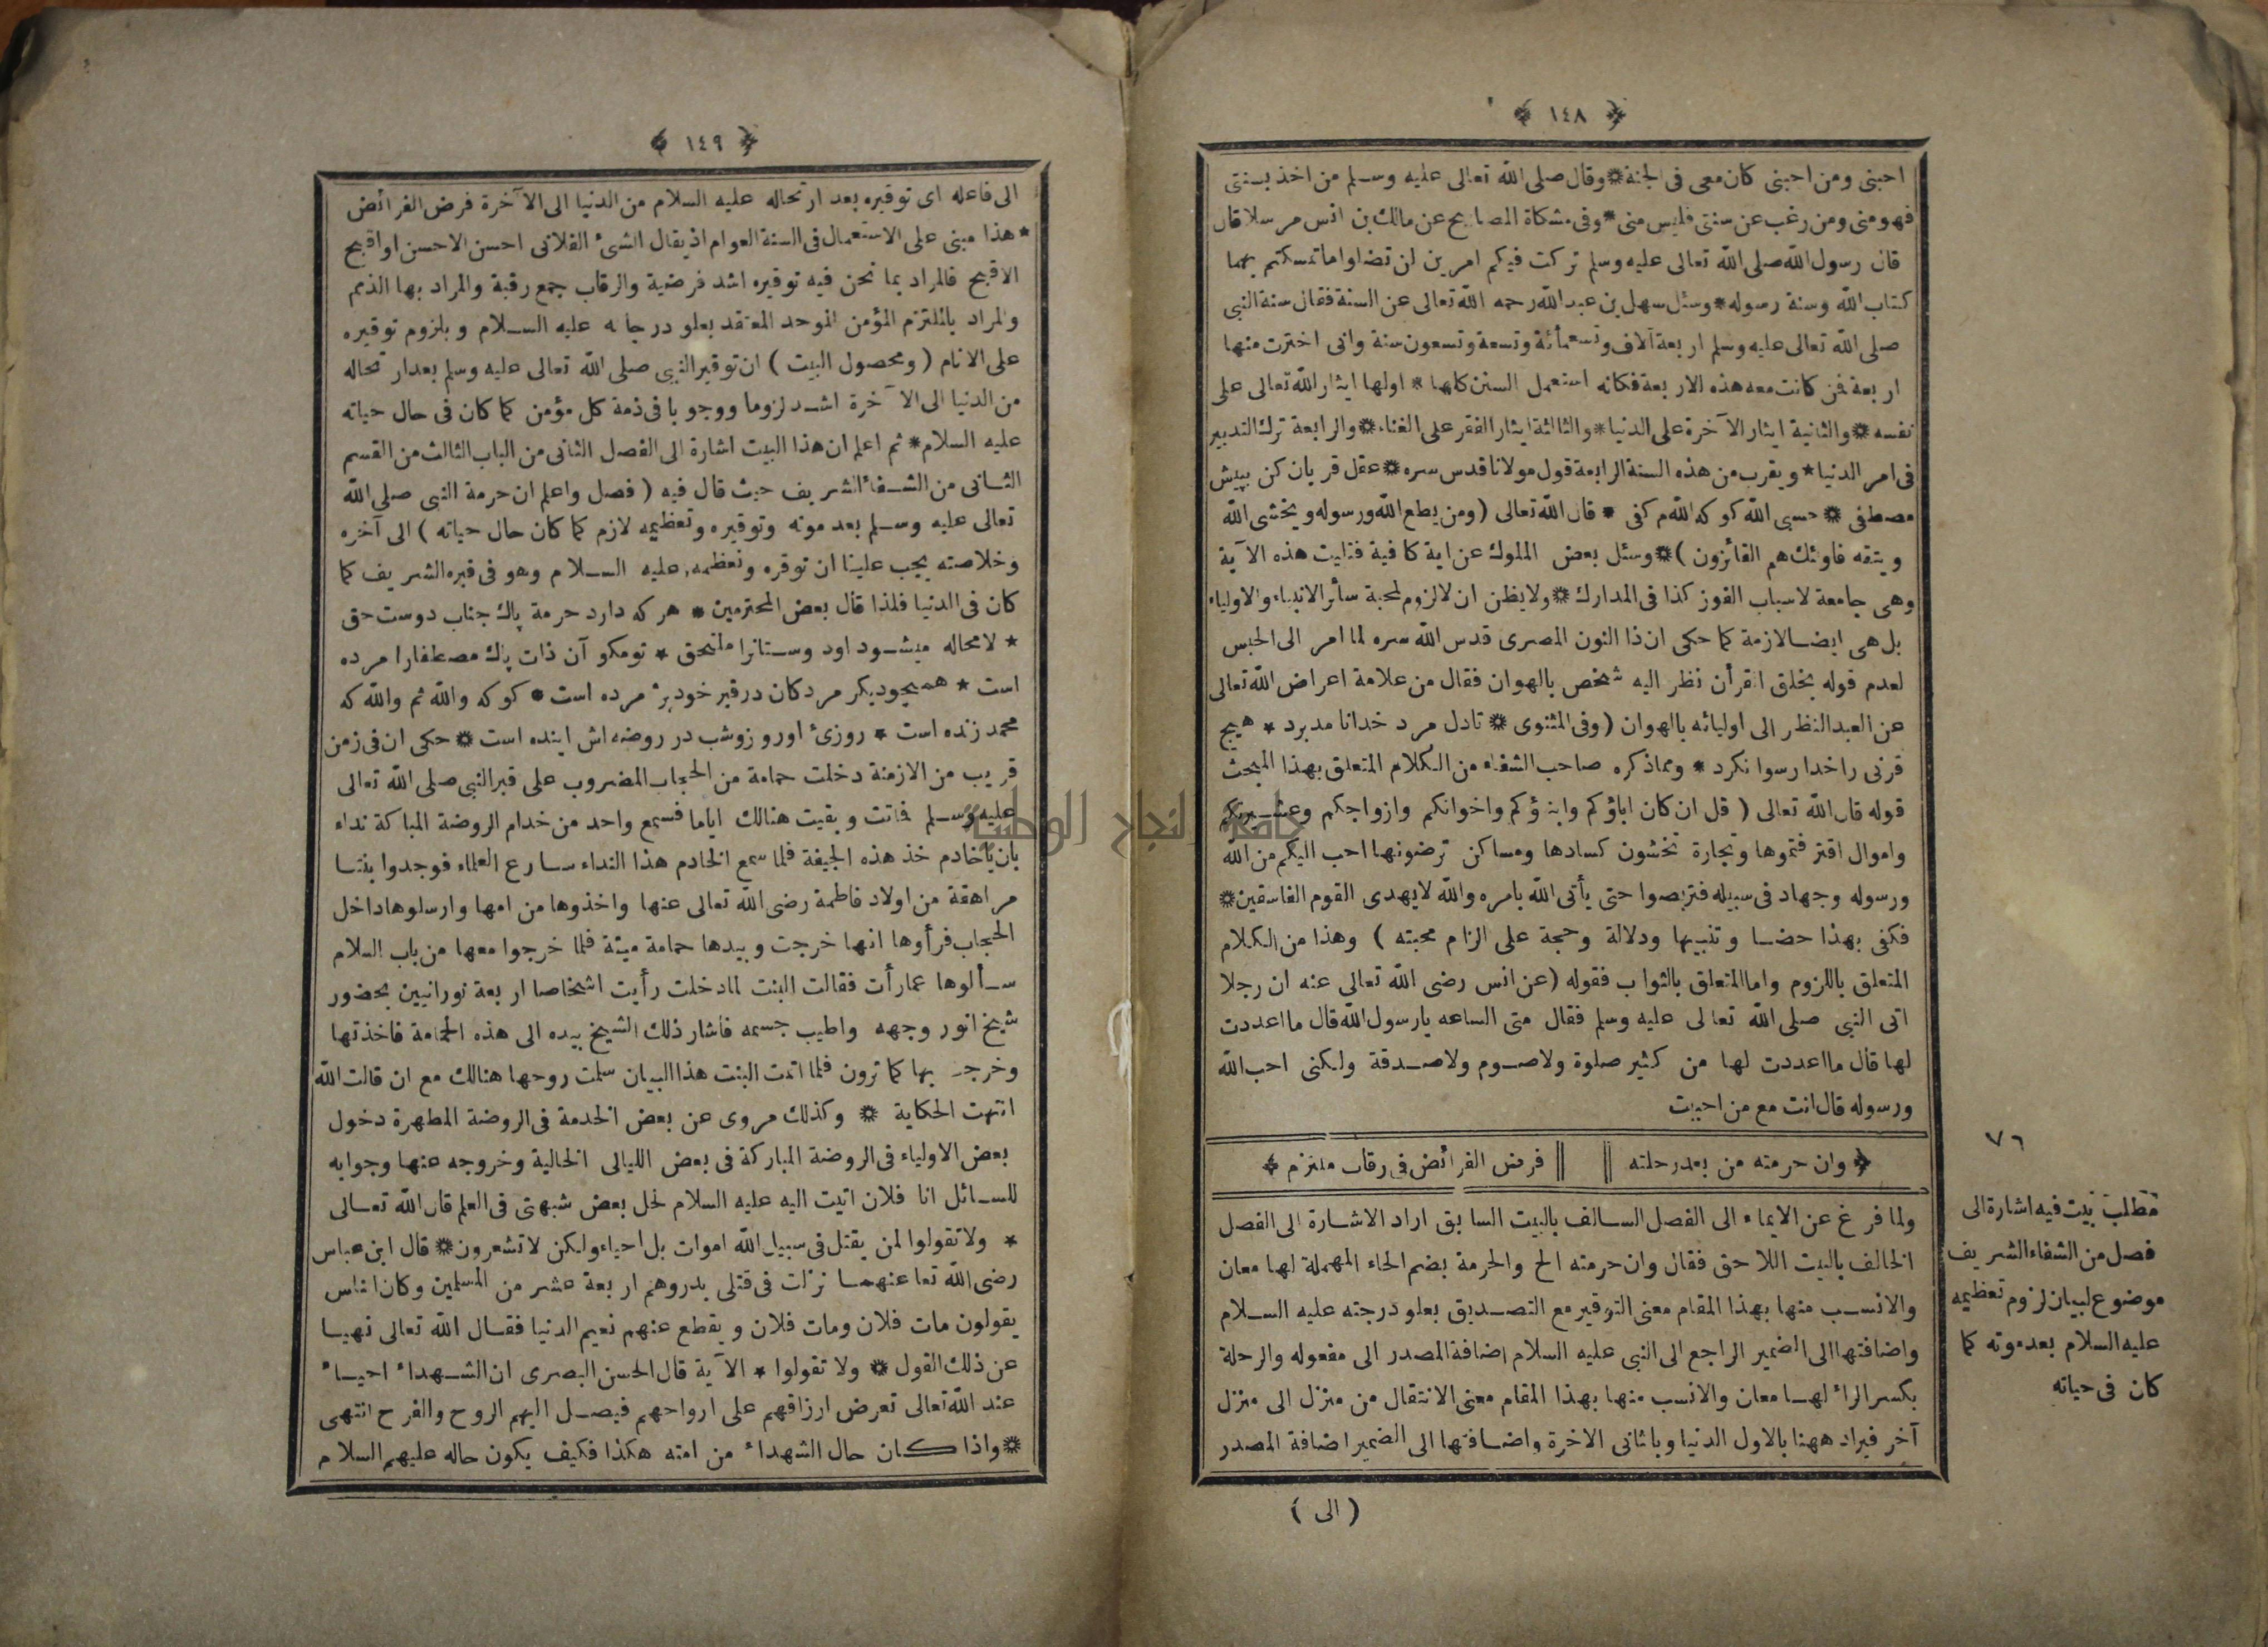 ﴿ ١٤٨ ﴾
احبنى ومن احبنى كان معى فى الجنة * وقال صلى الله تعالى عليه وسلم من اخذ بسنتى
فهو منى ومن رغب عن سنتى فليس منى * وفى مشكاة المصابيح عن مالك بن انس مرسلا قال
قال رسول الله صلى الله تعالى عليه وسلم تركت فيكم امرين لن تضلوا ما تمسكتم بهما
كتاب الله وسنة رسوله * وسئل سهل بن عبد الله رحمه الله تعالى عن السنة فقال سنة النبى
صلى الله تعالى عليه وسلم اربعة آلاف وتسعمائة وتسعة وتسعون سنة وانى اخترت منها
اربعة فمن كانت معه هذه الاربعة فكانه استعمل السنن كلها * اولها ايثار الله تعالى على
نفسه * والثانية ايثار الآخرة على الدنيا * والثالثة ايثار الفقر على الغناء * والرابعة ترك التدبير
فى امر الدنيا * ويقرب من هذه السنة الرابعة قول مولانا قدس سره * عقل قربان كن بپيش
مصطفى * حسبى الله كو كه الله م كفى * قال الله تعالى ( ومن يطع الله ورسوله ويخشى الله
ويتقه فاوئك هم الفائزون ) * وسئل بعض الملوك عن اية كافية فتليت هذه الآية
وهى جامعة لاسباب الفوز كذا فى المدارك * ولا يظن ان لا لزوم لمحبة سائر الانبياء والاولياء
بل هى ايضا لازمة كما حكى ان ذا النون المصرى قدس الله سره لما امر الى الحبس
لعدم قوله بخلق القرأن نظر اليه شخص بالهوان فقال من علامة اعراض الله تعالى
عن العبد النظر الى اوليائه بالهوان ( وفى المثنوى * تادل مرد خدا نامد بدرد * هيچ
قرنى را خدا رسوا نكرد * ومماذكره صاحب الشفاء من الكلام المتعلق بهذا المبحث
قوله قال الله تعالى ( قل ان كان اباؤكم وابنؤكم واخوانكم وازواجكم وعشيرتكم
واموال اقترفتموها وتجارة تخشون كسادها ومساكن ترضونها احب اليكم من الله
ورسوله وجهاد فى سبيله فتربصوا حتى يأتى الله بامره والله لا يهدى القوم الفاسقين *
فكفى بهذا حضا وتنبيها ودلالة وحجة على الزام محبته ) وهذا من الكلام
المتعلق باللزوم واما المتعلق بالثواب فقوله ( عن انس رضى الله تعالى عنه ان رجلا
اتى النبى صلى الله تعالى عليه وسلم فقال متى الساعه يارسول الله قال ما اعددت
لها قال ما اعددت لها من كثير صلوة ولا صوم ولا صدقة ولكنى احب الله
ورسوله قال انت مع من احببت
٧٦
﴿ وان حرمته من بعد رحلته || || فرض الفرائض فى رقاب ملتزم ﴾
ولما فرغ عن الايماء الى الفصل السالف بالبيت السابق اراد الاشارة الى الفصل
الخالف بالبيت اللاحق فقال وان حرمته الخ والحرمة بضم الحاء المهملة لها معان
والانسب منها بهذا المقام معنى التوقير مع التصديق بعلو درجته عليه السلام
واضافتها الى الضمير الراجع الى النبى عليه السلام اضافة المصدر الى مفعوله والرحلة
بكسر الراء لها معان والانسب منها بهذا المقام معنى الانتقال من منزل الى منزل
آخر فيراد ههنا بالاول الدنيا وبالثانى الاخرة واضافتها الى الضمير اضافة المصدر
مطلب بيت فيه اشارة الى
فصل من الشفاء الشريف
موضوع لبيان لزوم تعظيمه
عليه السلام بعد موته كما
كان فى حياته
( الى )
﴿ ١٤٩ ﴾
الى فاعله اى توقيره بعد ارتحاله عليه السلام من الدنيا الى الآخرة فرض الفرائض
* هذا مبنى على الاستعمال فى السنة العوام اذ يقال الشئ الفلانى احسن الاحسن او اقبح
الاقبح فالمراد بما نحن فيه توقيره اشد فرضية والرقاب جمع رقبة والمراد بها الذمم
والمراد بالملتزم المؤمن الموحد المعتقد بعلو درجاته عليه السلام وبلزوم توقيره
على الانام ( ومحصول البيت ) ان توقير النبى صلى الله تعالى عليه وسلم بعد ارتحاله
من الدنيا الى الآخرة اشد لزوما ووجوبا فى ذمة كل مؤمن كما كان فى حال حياته
عليه السلام * ثم اعلم ان هذا البيت اشارة الى الفصل الثانى من الباب الثالث من القسم
الثانى من الشفاء الشريف حيث قال فيه ( فصل واعلم ان حرمة النبى صلى الله
تعالى عليه وسلم بعد موته وتوقيره وتعظيمه لازم كما كان حال حياته ) الى آخره
وخلاصته يجب علينا ان نوقره ونعظمه عليه السلام وهو فى قبره الشريف كما
كان فى الدنيا فلذا قال بعض المحترمين * هر كه دارد حرمة پاك جناب دوست حق
* لامحاله ميشود اود وستانرا ملتحق * تو مكو آن ذات پاك مصطفارا مرده
است * همچوديكر مردكان درقبر خود پژ مرده است * كو كه والله ثم والله كه
محمد زنده است * روزئ اورو زوشب در روضه اش اينده است * حكى ان فى زمن
قريب من الازمنة دخلت حمامة من الحجاب المضروب على قبر النبى صلى الله تعالى
عليه وسلم فماتت وبقيت هنالك اياما فسمع واحد من خدام الروضة المباركة نداء
بان ياخادم خذ هذه الجيفة فلما سمع الخادم هذا النداء سارع العلماء فوجدوا بنتا
مراهقة من اولاد فاطمة رضى الله تعالى عنها واخذوها من امها وارسلوها داخل
الحجاب فرأوها انها خرجت وبيدها حمامة ميتة فلما خرجوا معها من باب السلام
سألوها عمارأت فقالت البنت لما دخلت رأيت اشخاصا اربعة نورانيين بحضور
شيخ انور وجهه واطيب جسمه فاشار ذلك الشيخ بيده الى هذه الحمامة فاخذتها
وخرجت بها كما ترون فلما اتمت البنت هذا البيان سلمت روحها هنالك مع ان قالت الله
انتهت الحكاية * وكذلك مروى عن بعض الخدمة فى الروضة المطهرة دخول
بعض الاولياء فى الروضة المباركة فى بعض الليالى الخالية وخروجه عنها وجوابه
للسائل انا فلان اتيت اليه عليه السلام لحل بعض شبهتى فى العلم قال الله تعالى
* ولا تقولوا لمن يقتل فى سبيل الله اموات بل احياء ولكن لا تشعرون * قال ابن عباس
رضى الله تعا عنهما نزلت فى قتلى بدر وهم اربعة عشر من المسلمين وكان الناس
يقولون مات فلان ومات فلان ويقطع عنهم نعيم الدنيا فقال الله تعالى نهيا
عن ذلك القول * ولا تقولوا * الآية قال الحسن البصرى ان الشهداء احياء
عند الله تعالى تعرض ارزاقهم على ارواحهم فيصل اليهم الروح والفرح انتهى
* واذا كان حال الشهداء من امته هكذا فكيف يكون حاله عليهم السلام
جامعة النجاح الوطنية